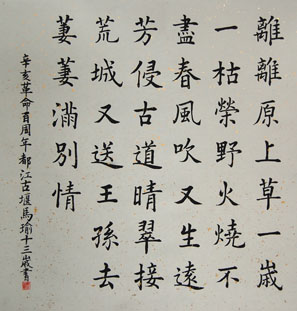 離離原上草一歲
一枯榮野火燒不
盡春風吹又生遠
芳侵古道晴翠接
荒城又送王孫去
萋萋滿別情
辛亥革命百周年都江古堰馬瑜十三歲書